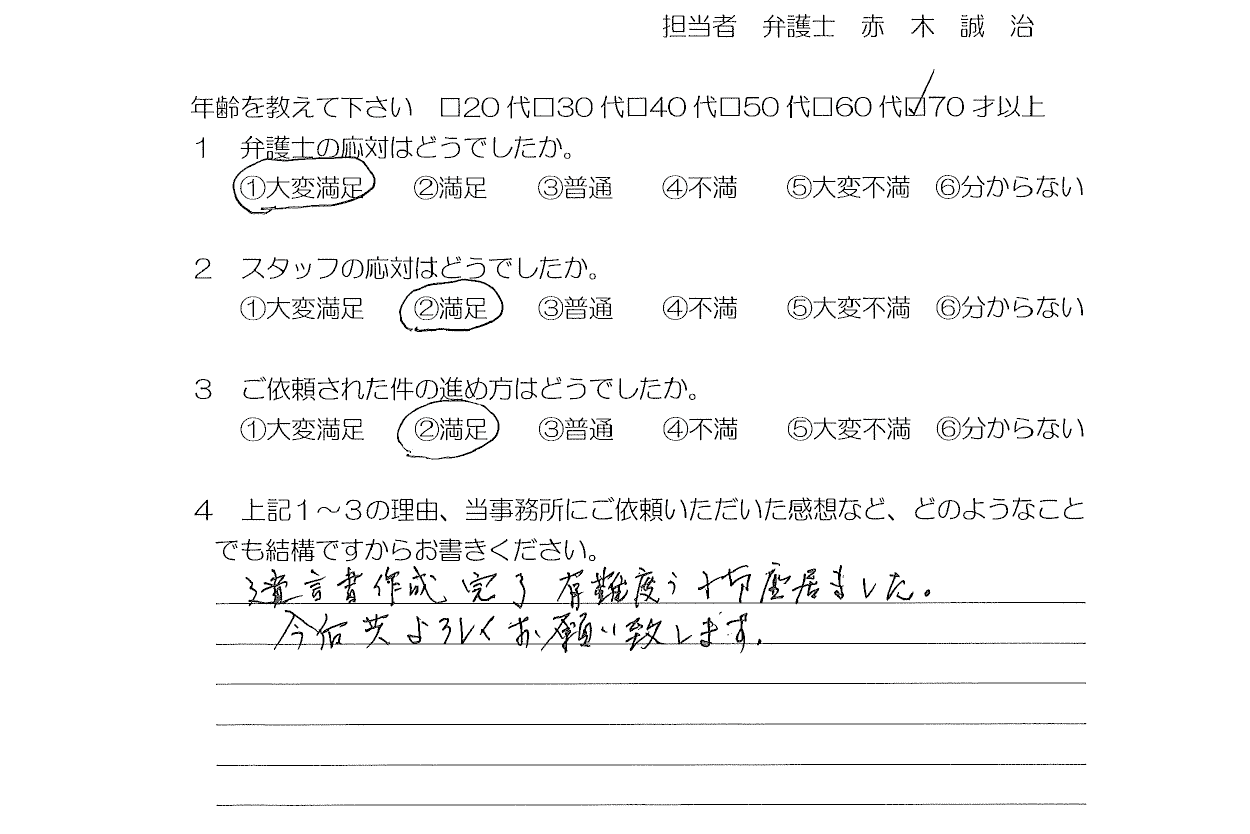 担当者　弁護士　赤　木　誠　治
年齢を教えて下さい　□20代□30代□40代□50代□60代☑70才以上
１　弁護士の応対はどうでしたか。
①大変満足　②満足　③普通　④不満　⑤大変不満　⑥分からない
２　スタッフの応対はどうでしたか。
①大変満足　②満足　③普通　④不満　⑤大変不満　⑥分からない
３　ご依頼された件の進め方はどうでしたか。
①大変満足　②満足　③普通　④不満　⑤大変不満　⑥分からない
４　上記１～３の理由、当事務所にご依頼いただいた感想など、どのようなこと
でも結構ですからお書きください。
遺言書作成 完了 有難度う 座居ました。
今后共よろしくお願い致します。